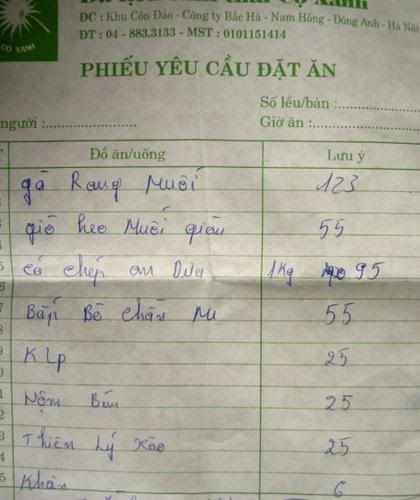 Cọ Xanh
CỌ XANH
ĐC : Khu Côn Đảo - Công ty Bắc Hà - Nam Hồng - Đông Anh - Hà Nội
ĐT : 04 - 883.3133 - MST : 0101151414
PHIẾU YÊU CẦU ĐẶT ĂN
Số lều/bàn :
người : Giờ ăn :
Đồ ăn/uống Lưu ý
gà Rang Muối 123
giò heo Muối giòn 55
cá chép om Dưa 1kg 95
Bắp Bò chấm Me 55
K Lp 25
Nộm Bún 25
Thiên Lý Xào 25
Khăn 6